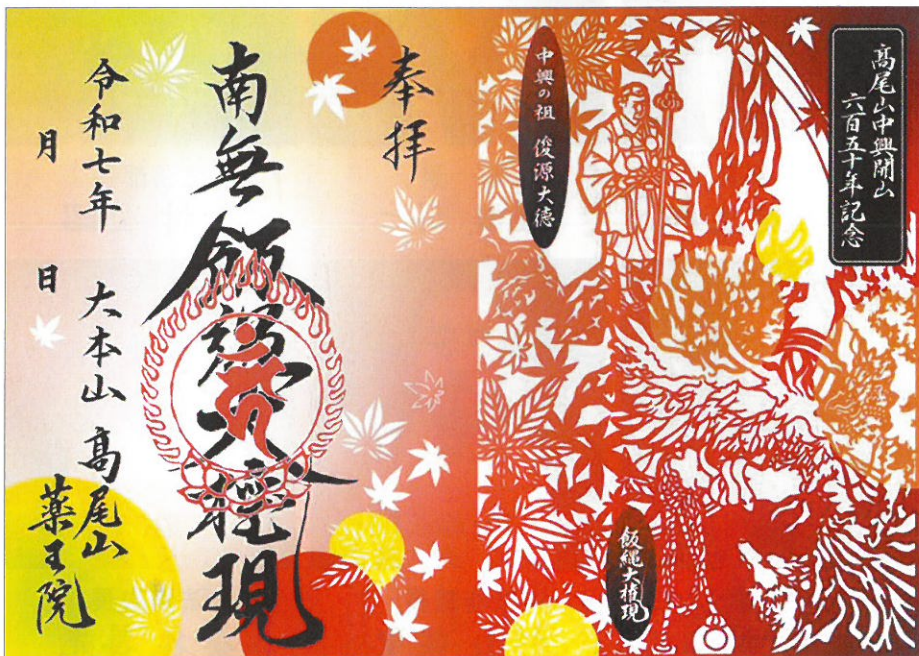 髙尾山中興開山
六百五十年記念
中興の祖 俊源大徳
飯縄大権現
奉拝
南無飯縄大権現
令和七年 大本山 髙尾山
月 日 薬王院